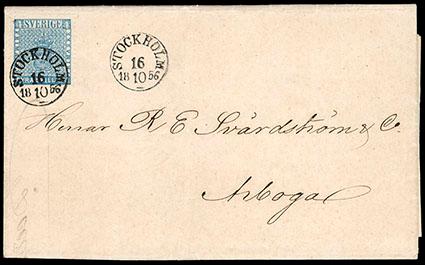 SVERIGE
STOCKHOLM
16
18 10 56
STOCKHOLM
16
18 10 56
Herrar R E Svärdström & C.
Arboga